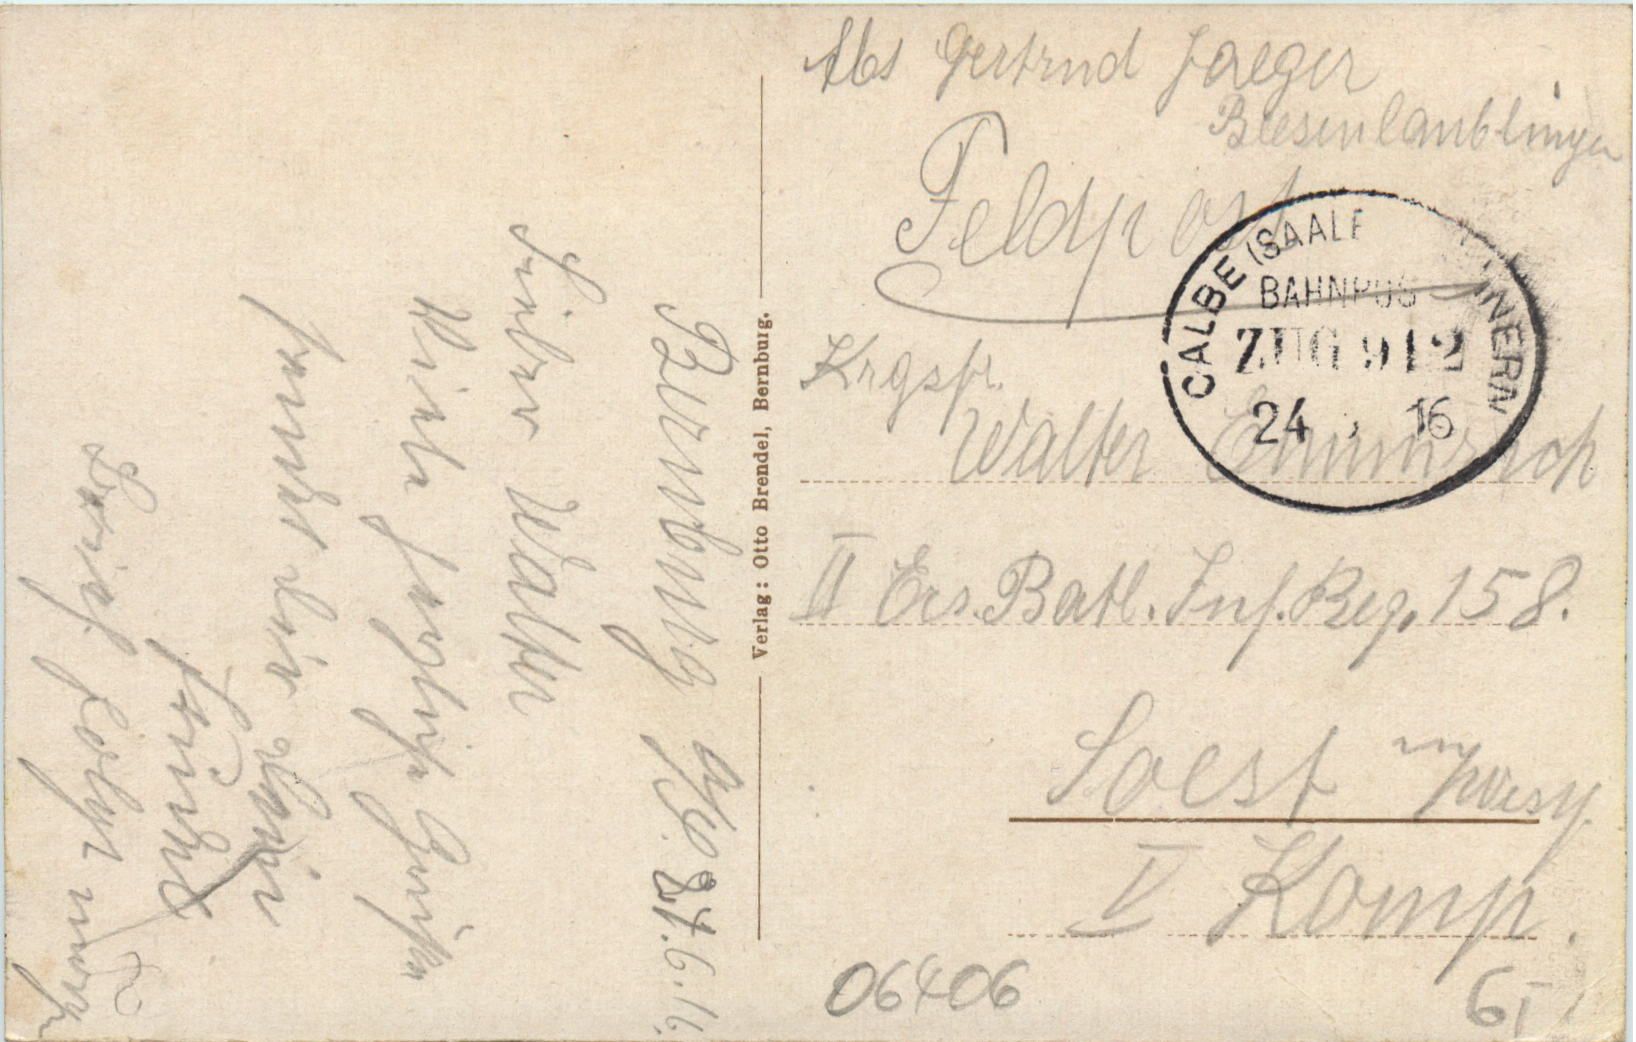 Abs Gertrud Jaeger
Beesenlaublingen
Feldpost
CALBE (SAALE NNERN
BAHNPOS
ZUG 912
24 16
Krgsfr.
Walter Emmerich
II Ers. Batl. Inf. Reg. 158.
Soest
V Komp.
06406
Verlag: Otto Brendel, Bernburg.
Bernburg 24.6.16.
Lieber Walter
Viele herzliche Grüße
sendet dir deine
Freundin
Brief folgt morgen